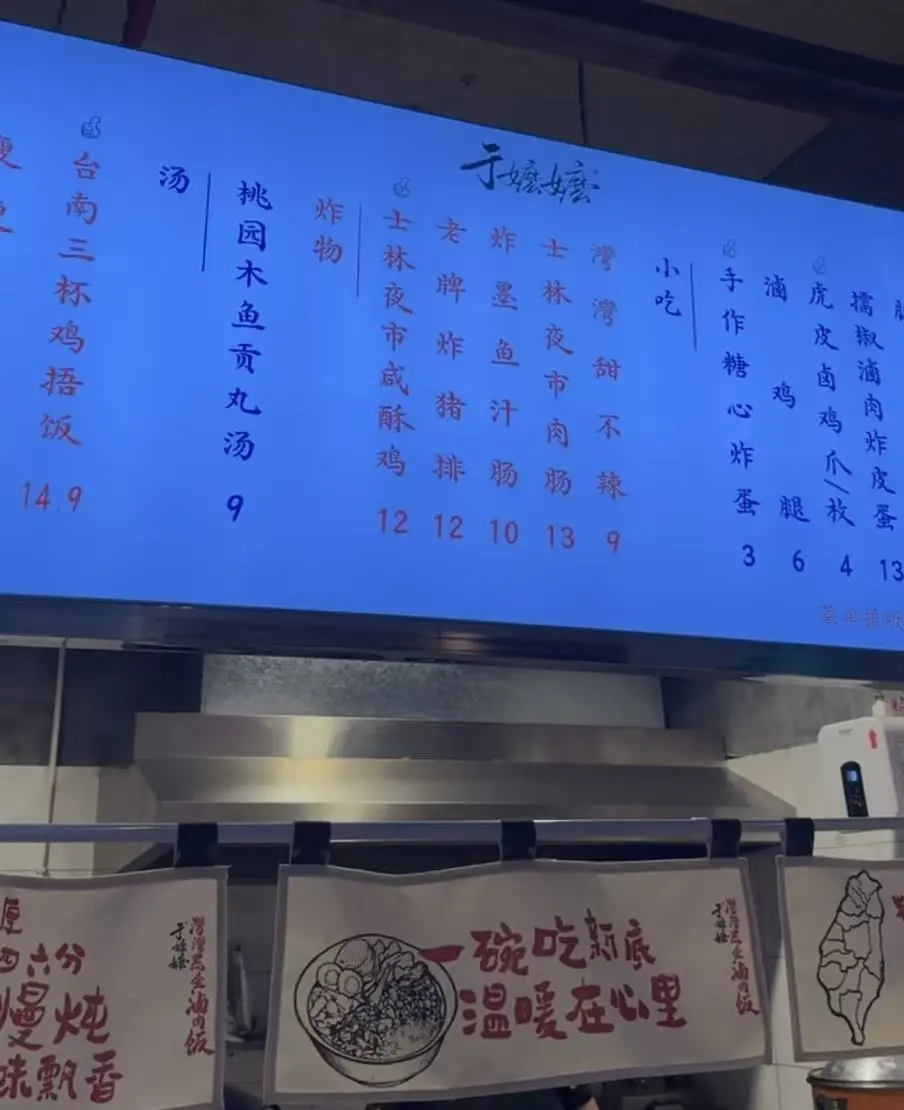 于嬷嬷
台南三杯鸡捂饭
14.9
汤
桃园木鱼贡丸汤
9
炸物
士林夜市咸酥鸡
12
老牌炸猪排
12
炸墨鱼汁肠
10
士林夜市肉肠
13
灣灣甜不辣
9
小吃
手作糖心炸蛋
3
滷鸡腿
6
虎皮卤鸡爪/枚
4
擂椒滷肉炸皮蛋
13
六分
慢炖
味飘香
于嬷嬷
滷肉饭
一碗吃到底
温暖在心里
于嬷嬷
滷肉饭